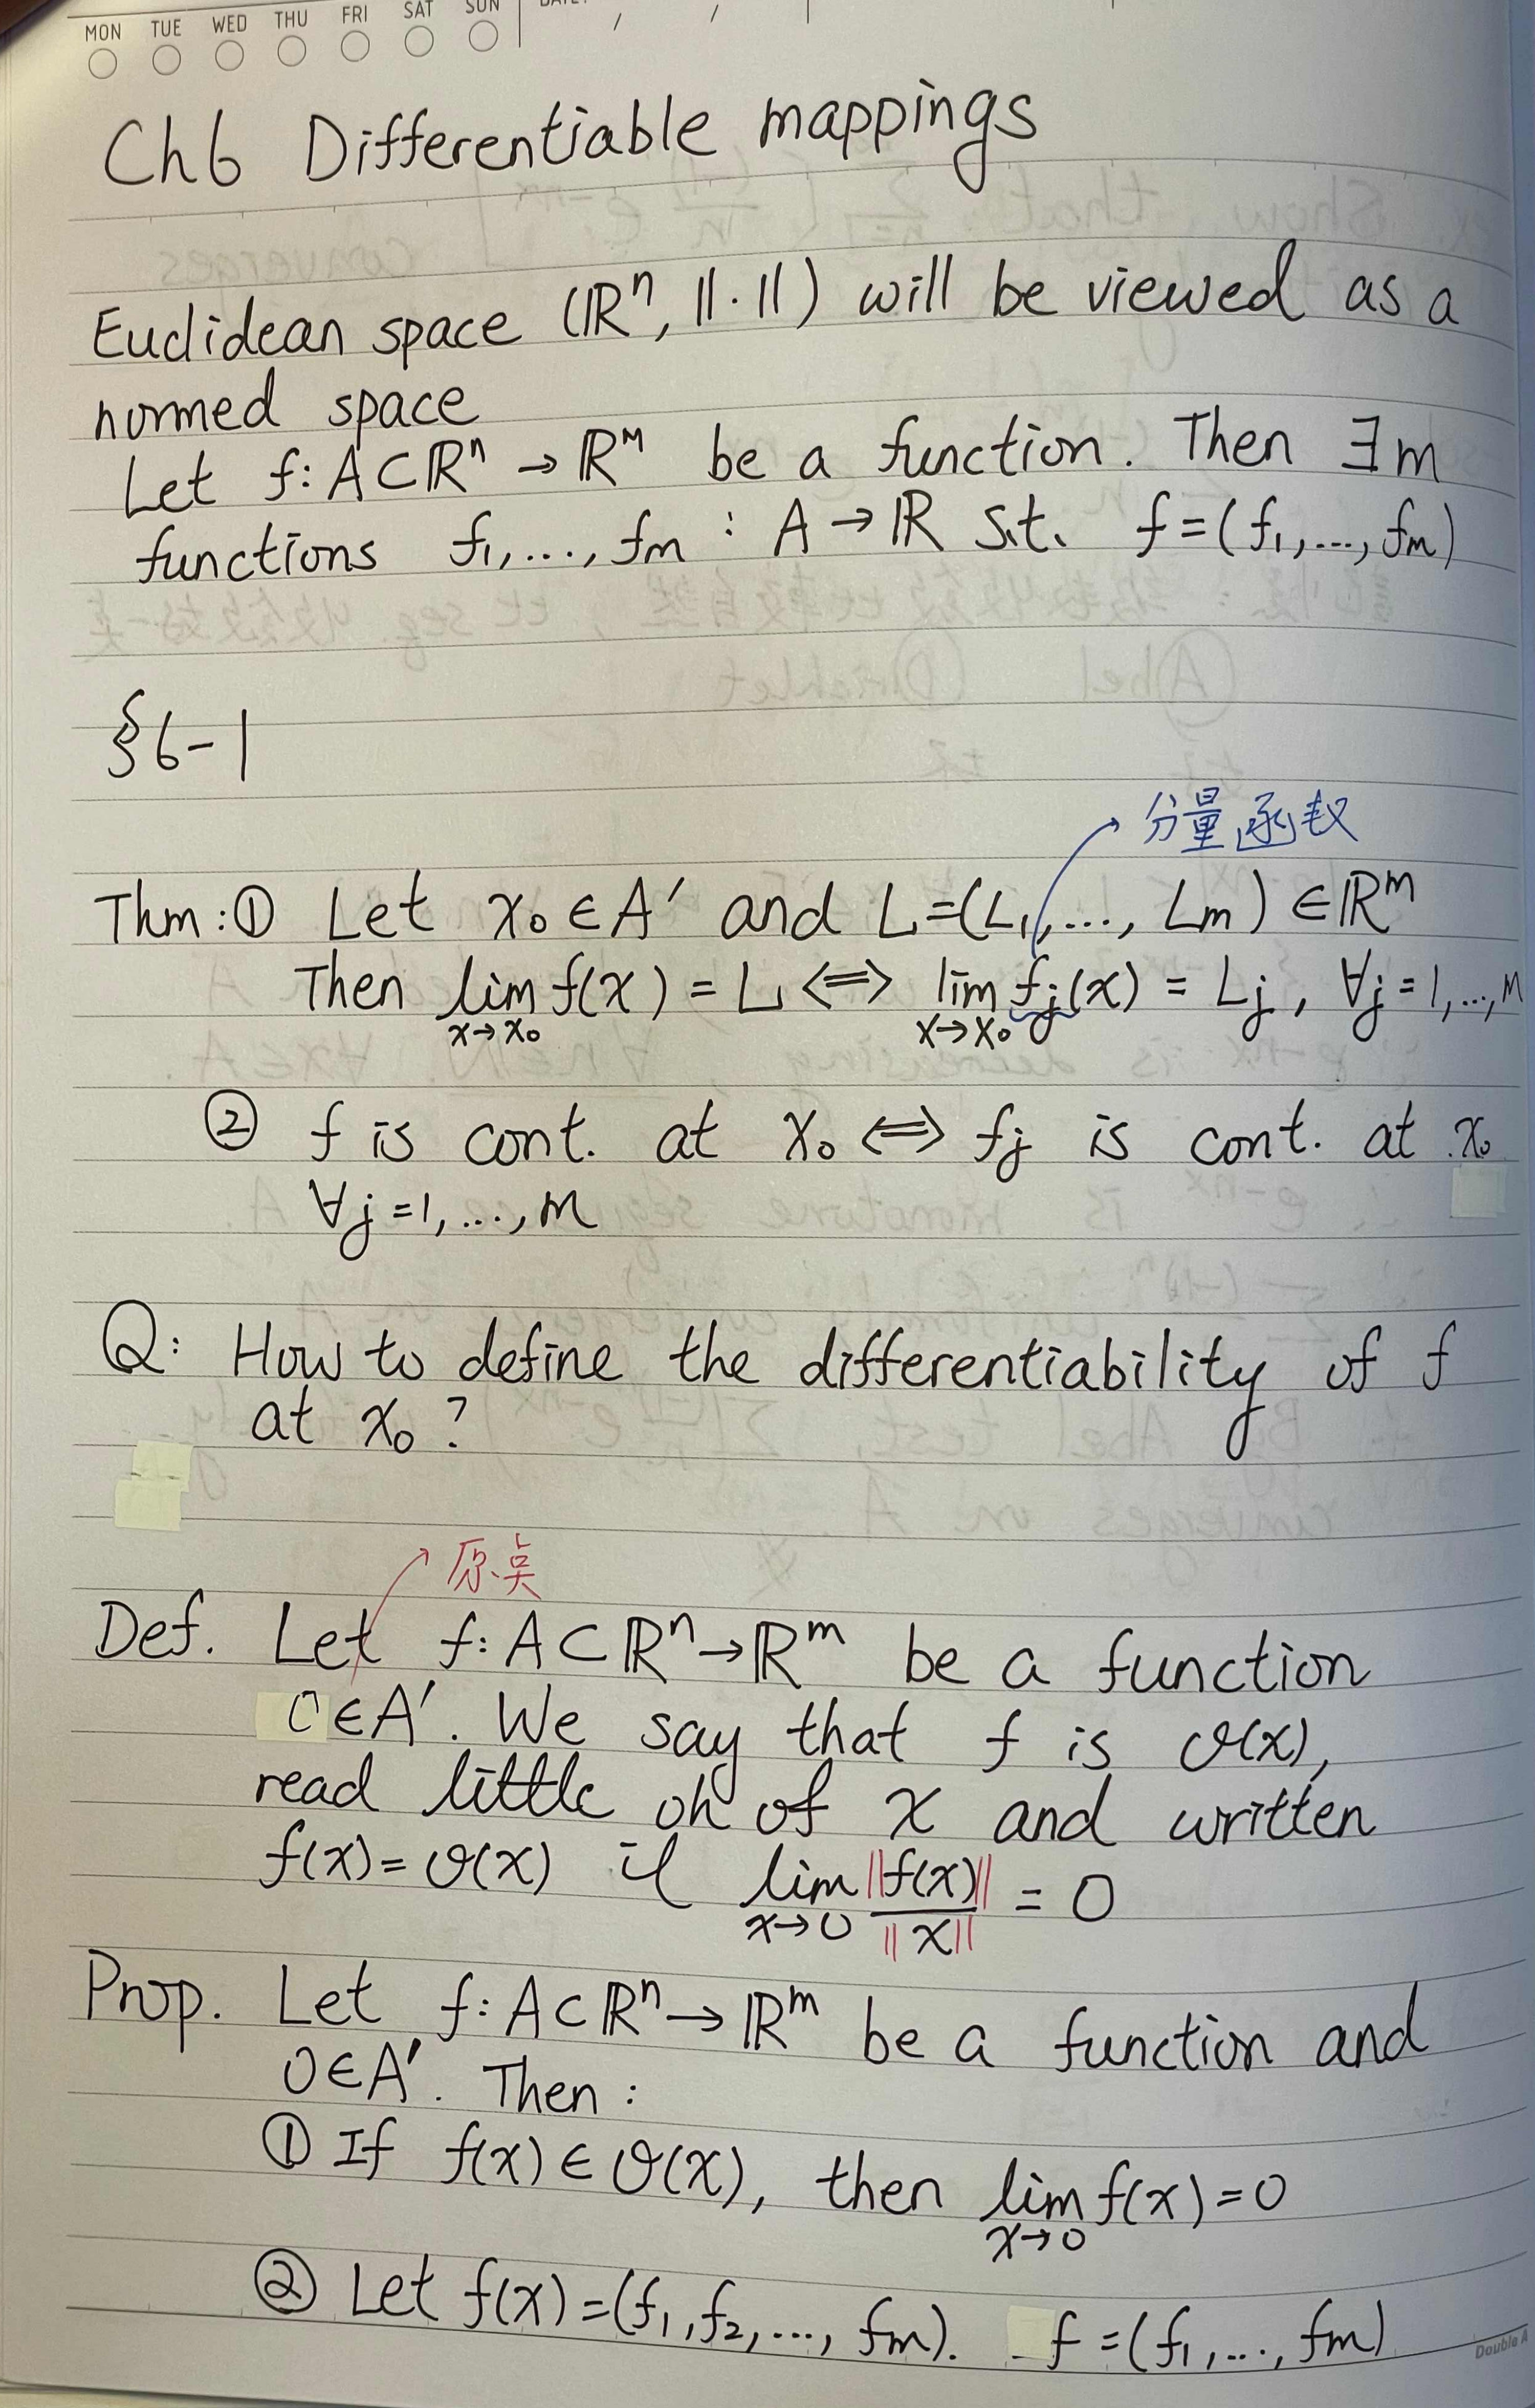 MON TUE WED THU FRI SAT SUN
Ch6 Differentiable mappings
Euclidean space (ℝⁿ, ||·||) will be viewed as a
normed space
Let f: A⊂ℝⁿ → ℝᵐ be a function. Then ∃m
functions f₁,..., fₘ : A→ℝ s.t. f=(f₁,..., fₘ)
§6-1
分量函数
Thm:① Let x₀∈A′ and L=(L₁,..., Lₘ) ∈ℝᵐ
Then lim f(x) = L ⟺ lim fⱼ(x) = Lⱼ, ∀j=1,...,m
x→x₀ x→x₀
② f is cont. at x₀ ⟺ fⱼ is cont. at x₀
∀j=1,...,m
Q: How to define the differentiability of f
at x₀ ?
原点
Def. Let f: A⊂ℝⁿ→ℝᵐ be a function
0∈A′. We say that f is o(x),
read little oh of x and written
f(x)=o(x) if lim ||f(x)|| / ||x|| = 0
x→0
Prop. Let f: A⊂ℝⁿ→ℝᵐ be a function and
0∈A′. Then :
① If f(x)∈o(x), then lim f(x)=0
x→0
② Let f(x)=(f₁,f₂,..., fₘ). f=(f₁,..., fₘ)
Double A